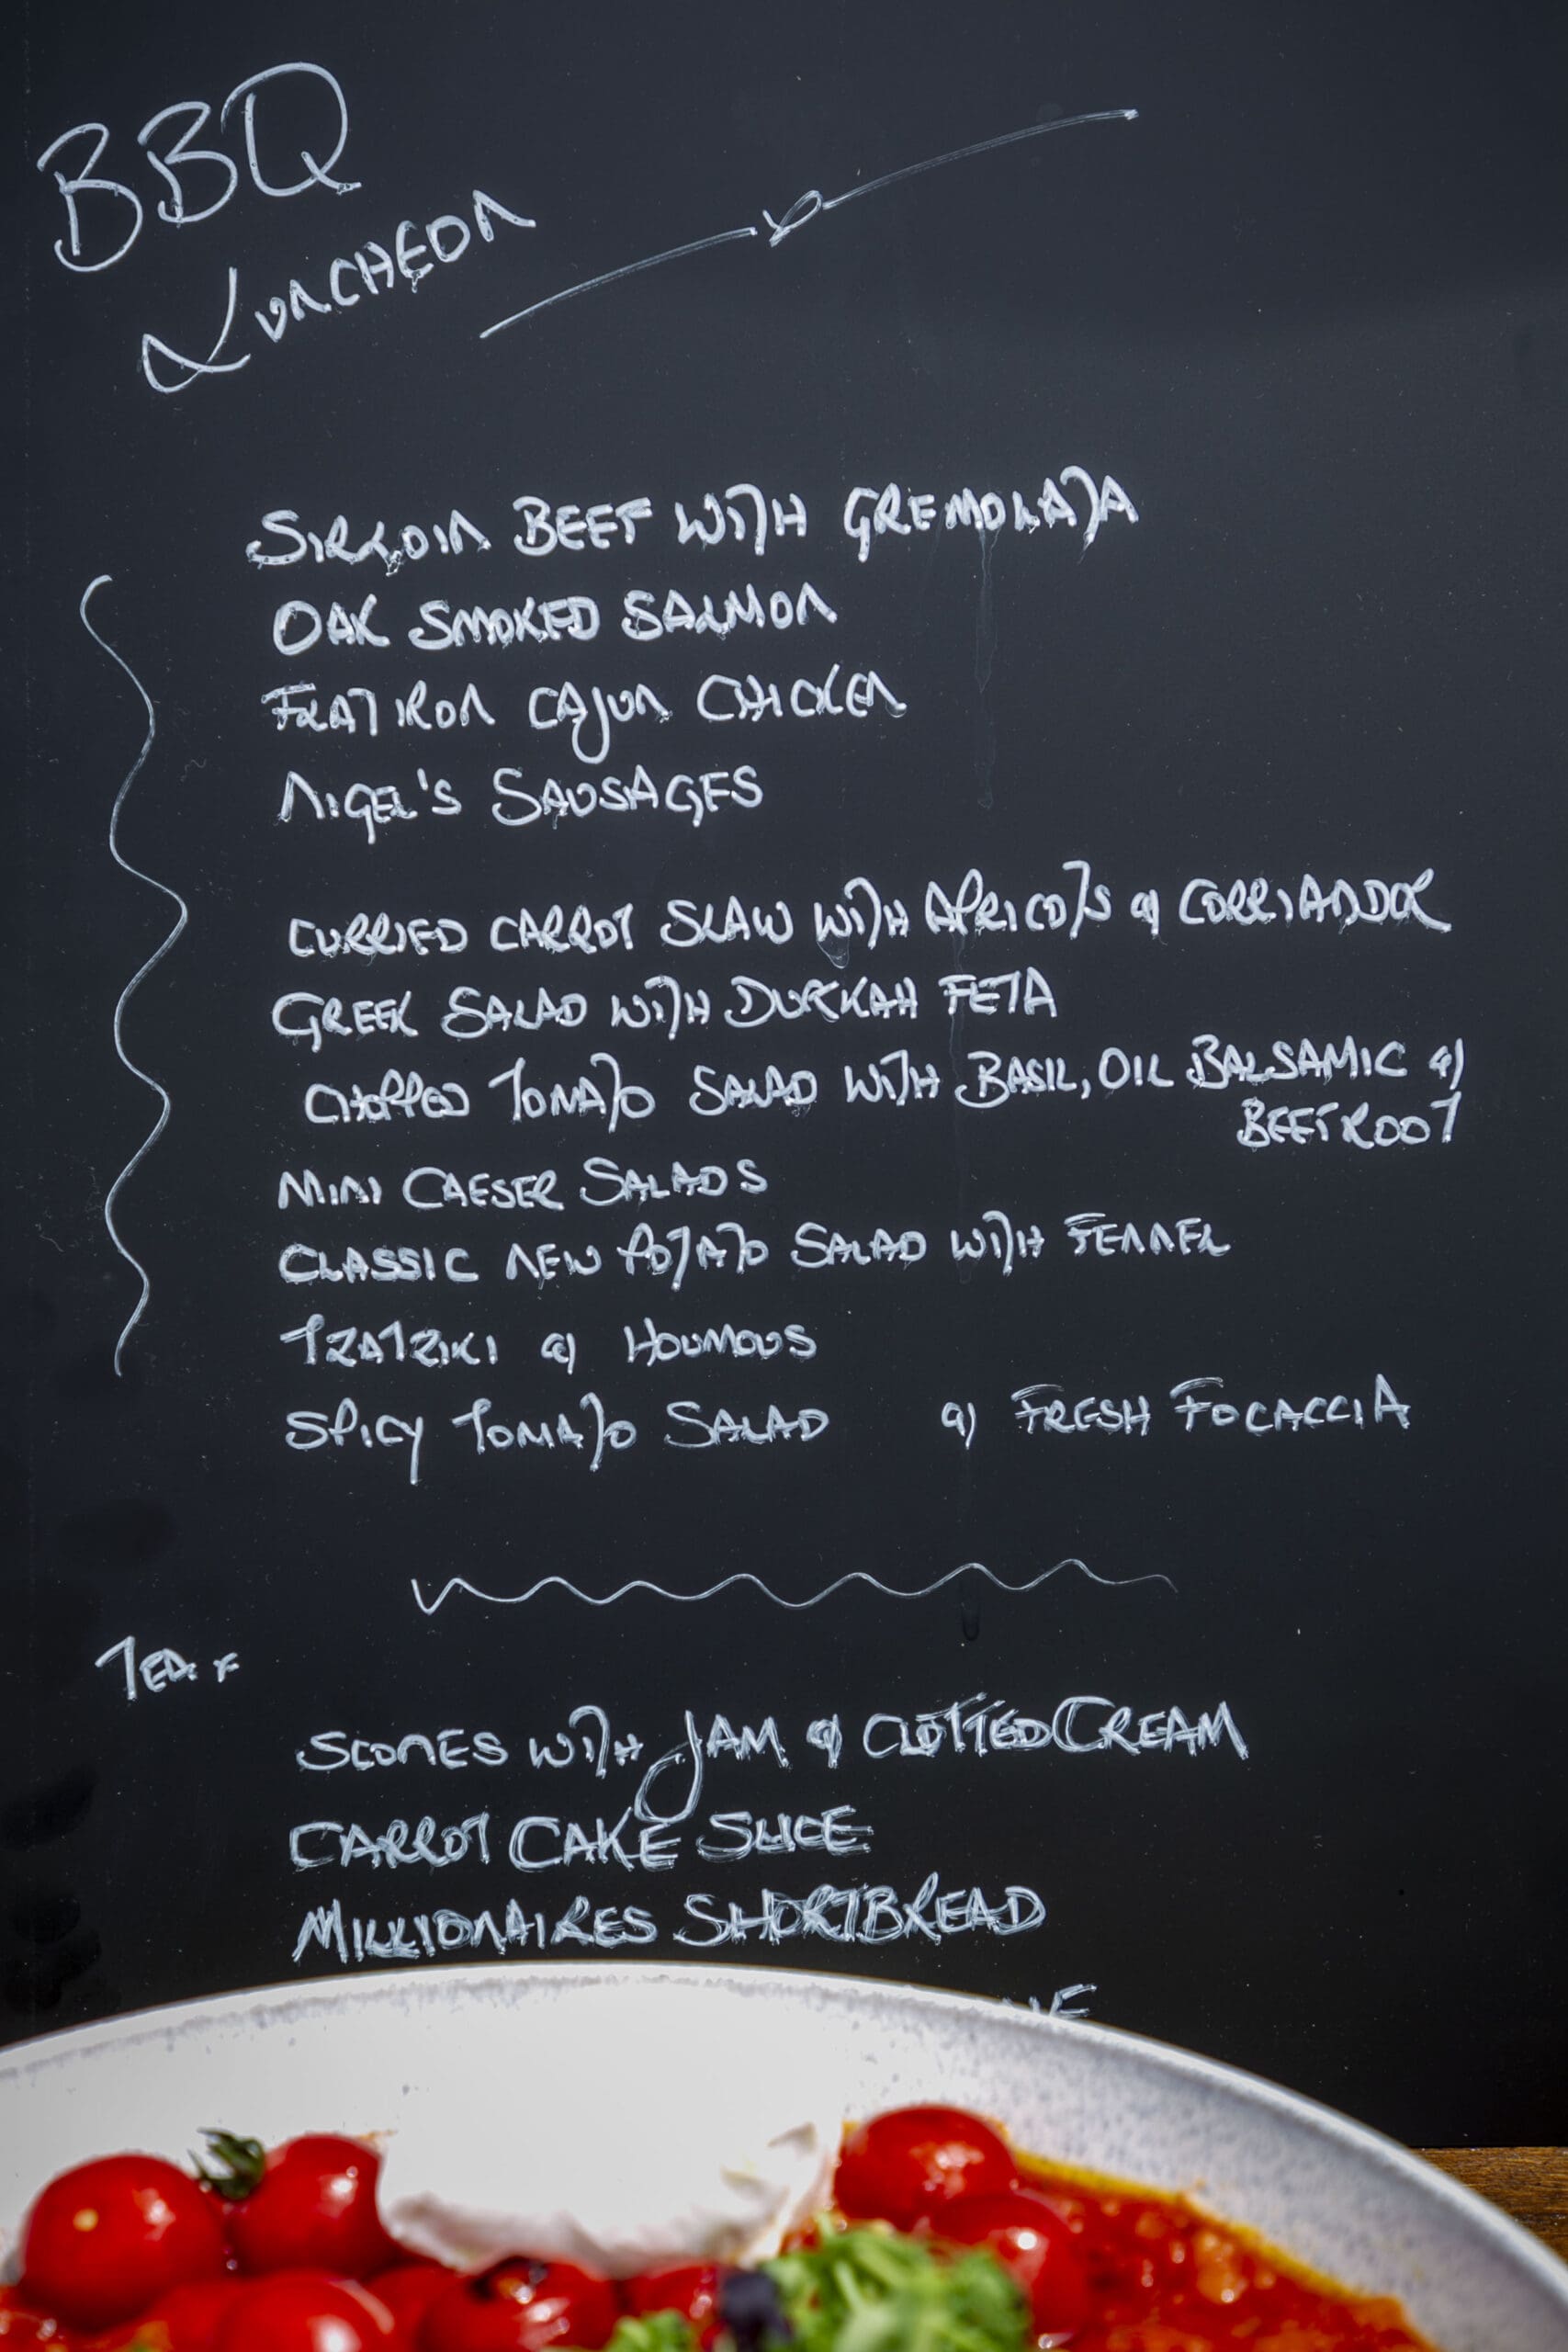 BBQ
LUNCHEON
SIRLOIN BEEF WITH GREMOLATA
OAK SMOKED SALMON
FLAT IRON CAJUN CHICKEN
NIGEL'S SAUSAGES
CURRIED CARROT SLAW WITH APRICOTS & CORRIANDOR
GREEK SALAD WITH DUKKAH FETA
CHOPPED TOMATO SALAD WITH BASIL, OIL BALSAMIC &
BEETROOT
MINI CAESER SALADS
CLASSIC NEW POTATO SALAD WITH FENNEL
TZATZIKI & HOUMOUS
SPICY TOMATO SALAD & FRESH FOCACCIA
TEA
SCONES WITH JAM & CLOTTED CREAM
CARROT CAKE SLICE
MILLIONAIRES SHORTBREAD